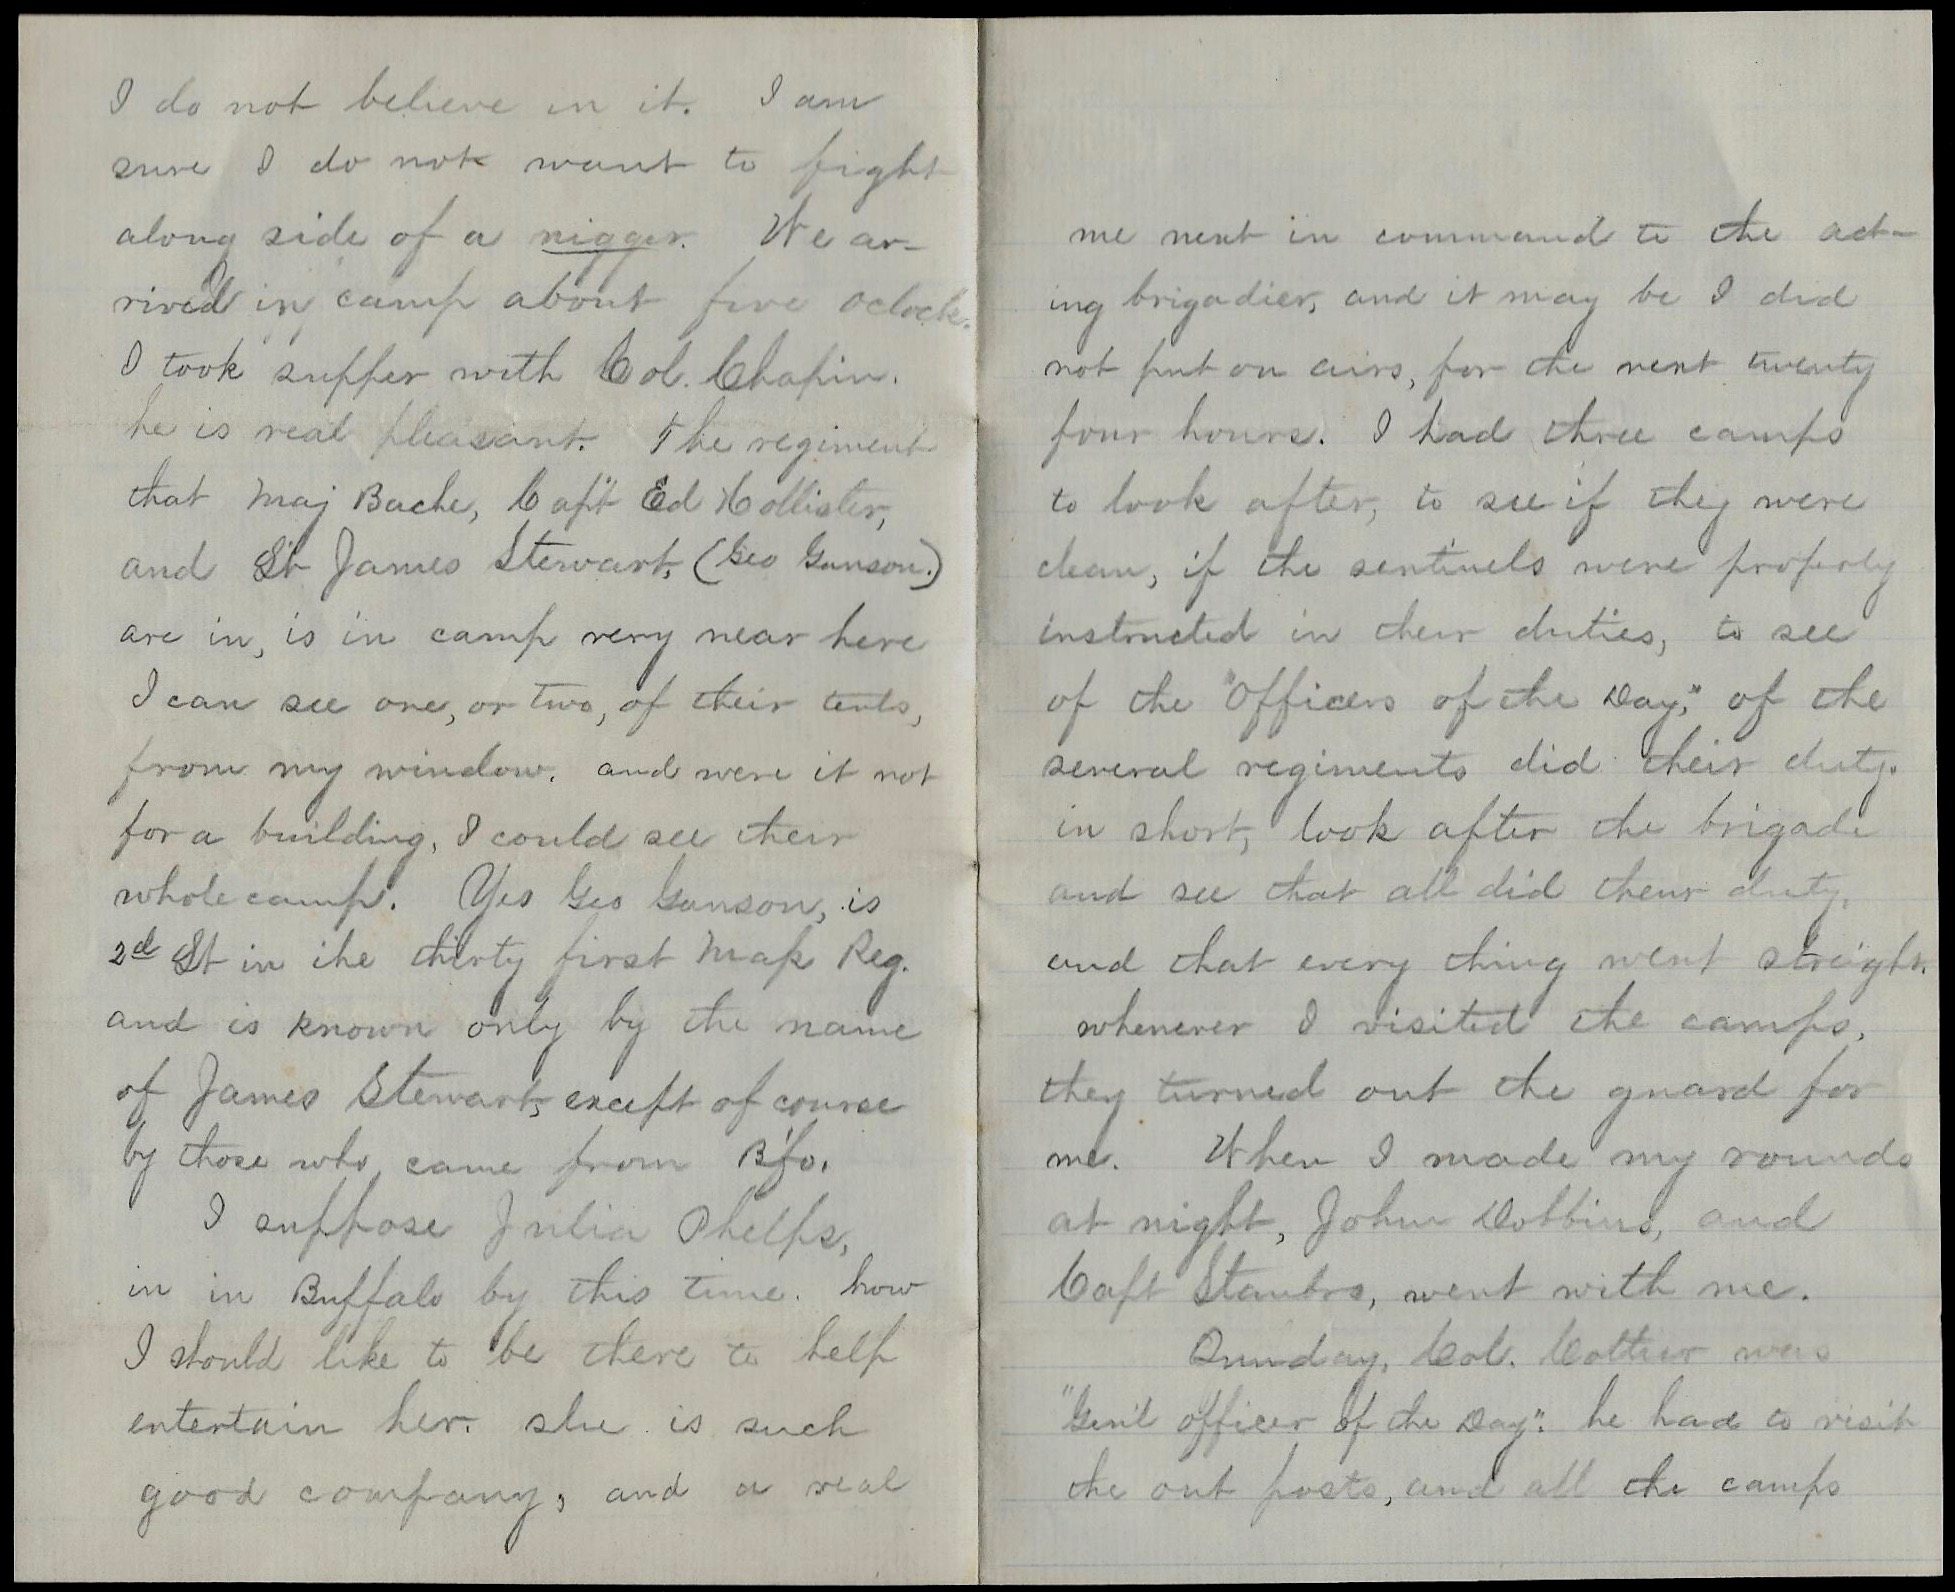 I do not believe in it. I am
sure I do not want to fight
along side of a nigger. We ar-
rived in camp about five oclock.
I took supper with Col. Chapin.
he is real pleasant. The regiment
that Maj Bache, Capt Ed Hollister,
and Lt James Stewart, (Geo Ganson.)
are in, is in camp very near here
I can see one, or two, of their tents,
from my window. and were it not
for a building, I could see their
whole camp. Yes Geo Ganson, is
2d Lt in the thirty first Mass Reg.
and is known only by the name
of James Stewart, except of course
by those who came from B'fo.
I suppose Julia Phelps,
in in Buffalo by this time. how
I should like to be there to help
entertain her. she is such
good company, and a real
me next in command to the act-
ing brigadier, and it may be I did
not put on airs, for the next twenty
four hours. I had three camps
to look after, to see if they were
clean, if the sentinels were properly
instructed in their duties, to see
of the "Officers of the Day," of the
several regiments did their duty.
in short, look after the brigade
and see that all did their duty,
and that every thing went streight.
whenever I visited the camps,
they turned out the guard for
me. When I made my rounds
at night, John Dobbins, and
Capt Stanbro, went with me.
Sunday, Col. Cottier was
"Gen'l officer of the Day": he had to visit
the out posts, and all the camps